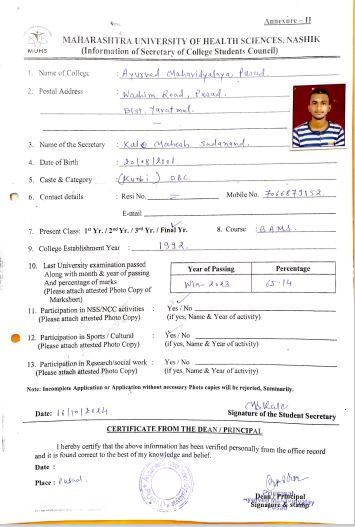 Annexure – II
MAHARASHTRA UNIVERSITY OF HEALTH SCIENCES, NASHIK
(Information of Secretary of College Students Council)
MUHS
1. Name of College : Ayurved Mahavidyalaya, Pusad.
2. Postal Address : Washim Road, Pusad.
Dist. Yavatmal.
3. Name of the Secretary : Kale Mahesh Sudanand.
4. Date of Birth :
5. Caste & Category : (Kunbi) OBC
6. Contact details : Resi No. Mobile No. 7066873152
E-mail
7. Present Class: 1st Yr. / 2nd Yr. / 3rd Yr. / Final Yr. 8. Course : B.A.M.S.
9. College Establishment Year : 1992.
10. Last University examination passed
Along with month & year of passing
And percentage of marks
(Please attach attested Photo Copy of
Marksheet)
Year of Passing Percentage
Win-2023 65.14
11. Participation in NSS/NCC activities : Yes / No
(Please attach attested Photo Copy) (if yes, Name & Year of activity)
12. Participation in Sports / Cultural : Yes / No
(Please attach attested Photo Copy) (if yes, Name & Year of activity)
13. Participation in Research/social work : Yes / No
(Please attach attested Photo Copy) (if yes, Name & Year of activity)
Note: Incomplete Application or Application without necessary Photo copies will be rejected, Summarily.
Date: 16/10/2024.
Signature of the Student Secretary
CERTIFICATE FROM THE DEAN / PRINCIPAL
I hereby certify that the above information has been verified personally from the office record
and it is found correct to the best of my knowledge and belief.
Date :
Place : Pusad.
Dean / Principal
Signature & stamp